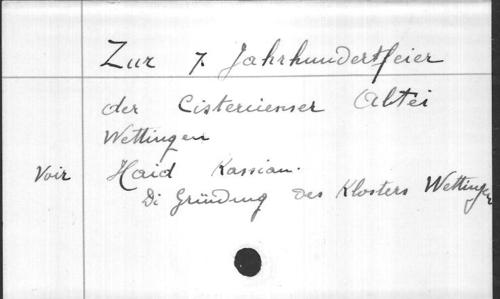 Zur 7. Jahrhundertfeier
der Cistercienser Abtei
Wettingen
Voir Haid Kassian.
Di Gründung des Klosters Wettingen